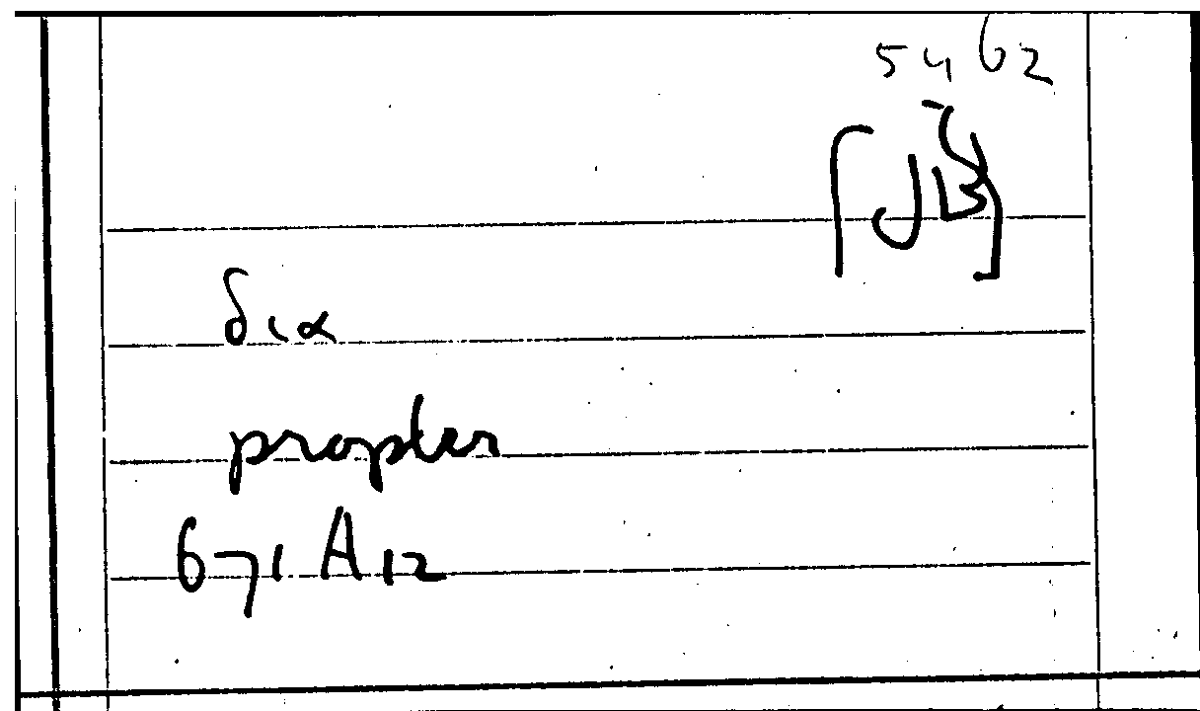 5462
δια
propter
671 A 12